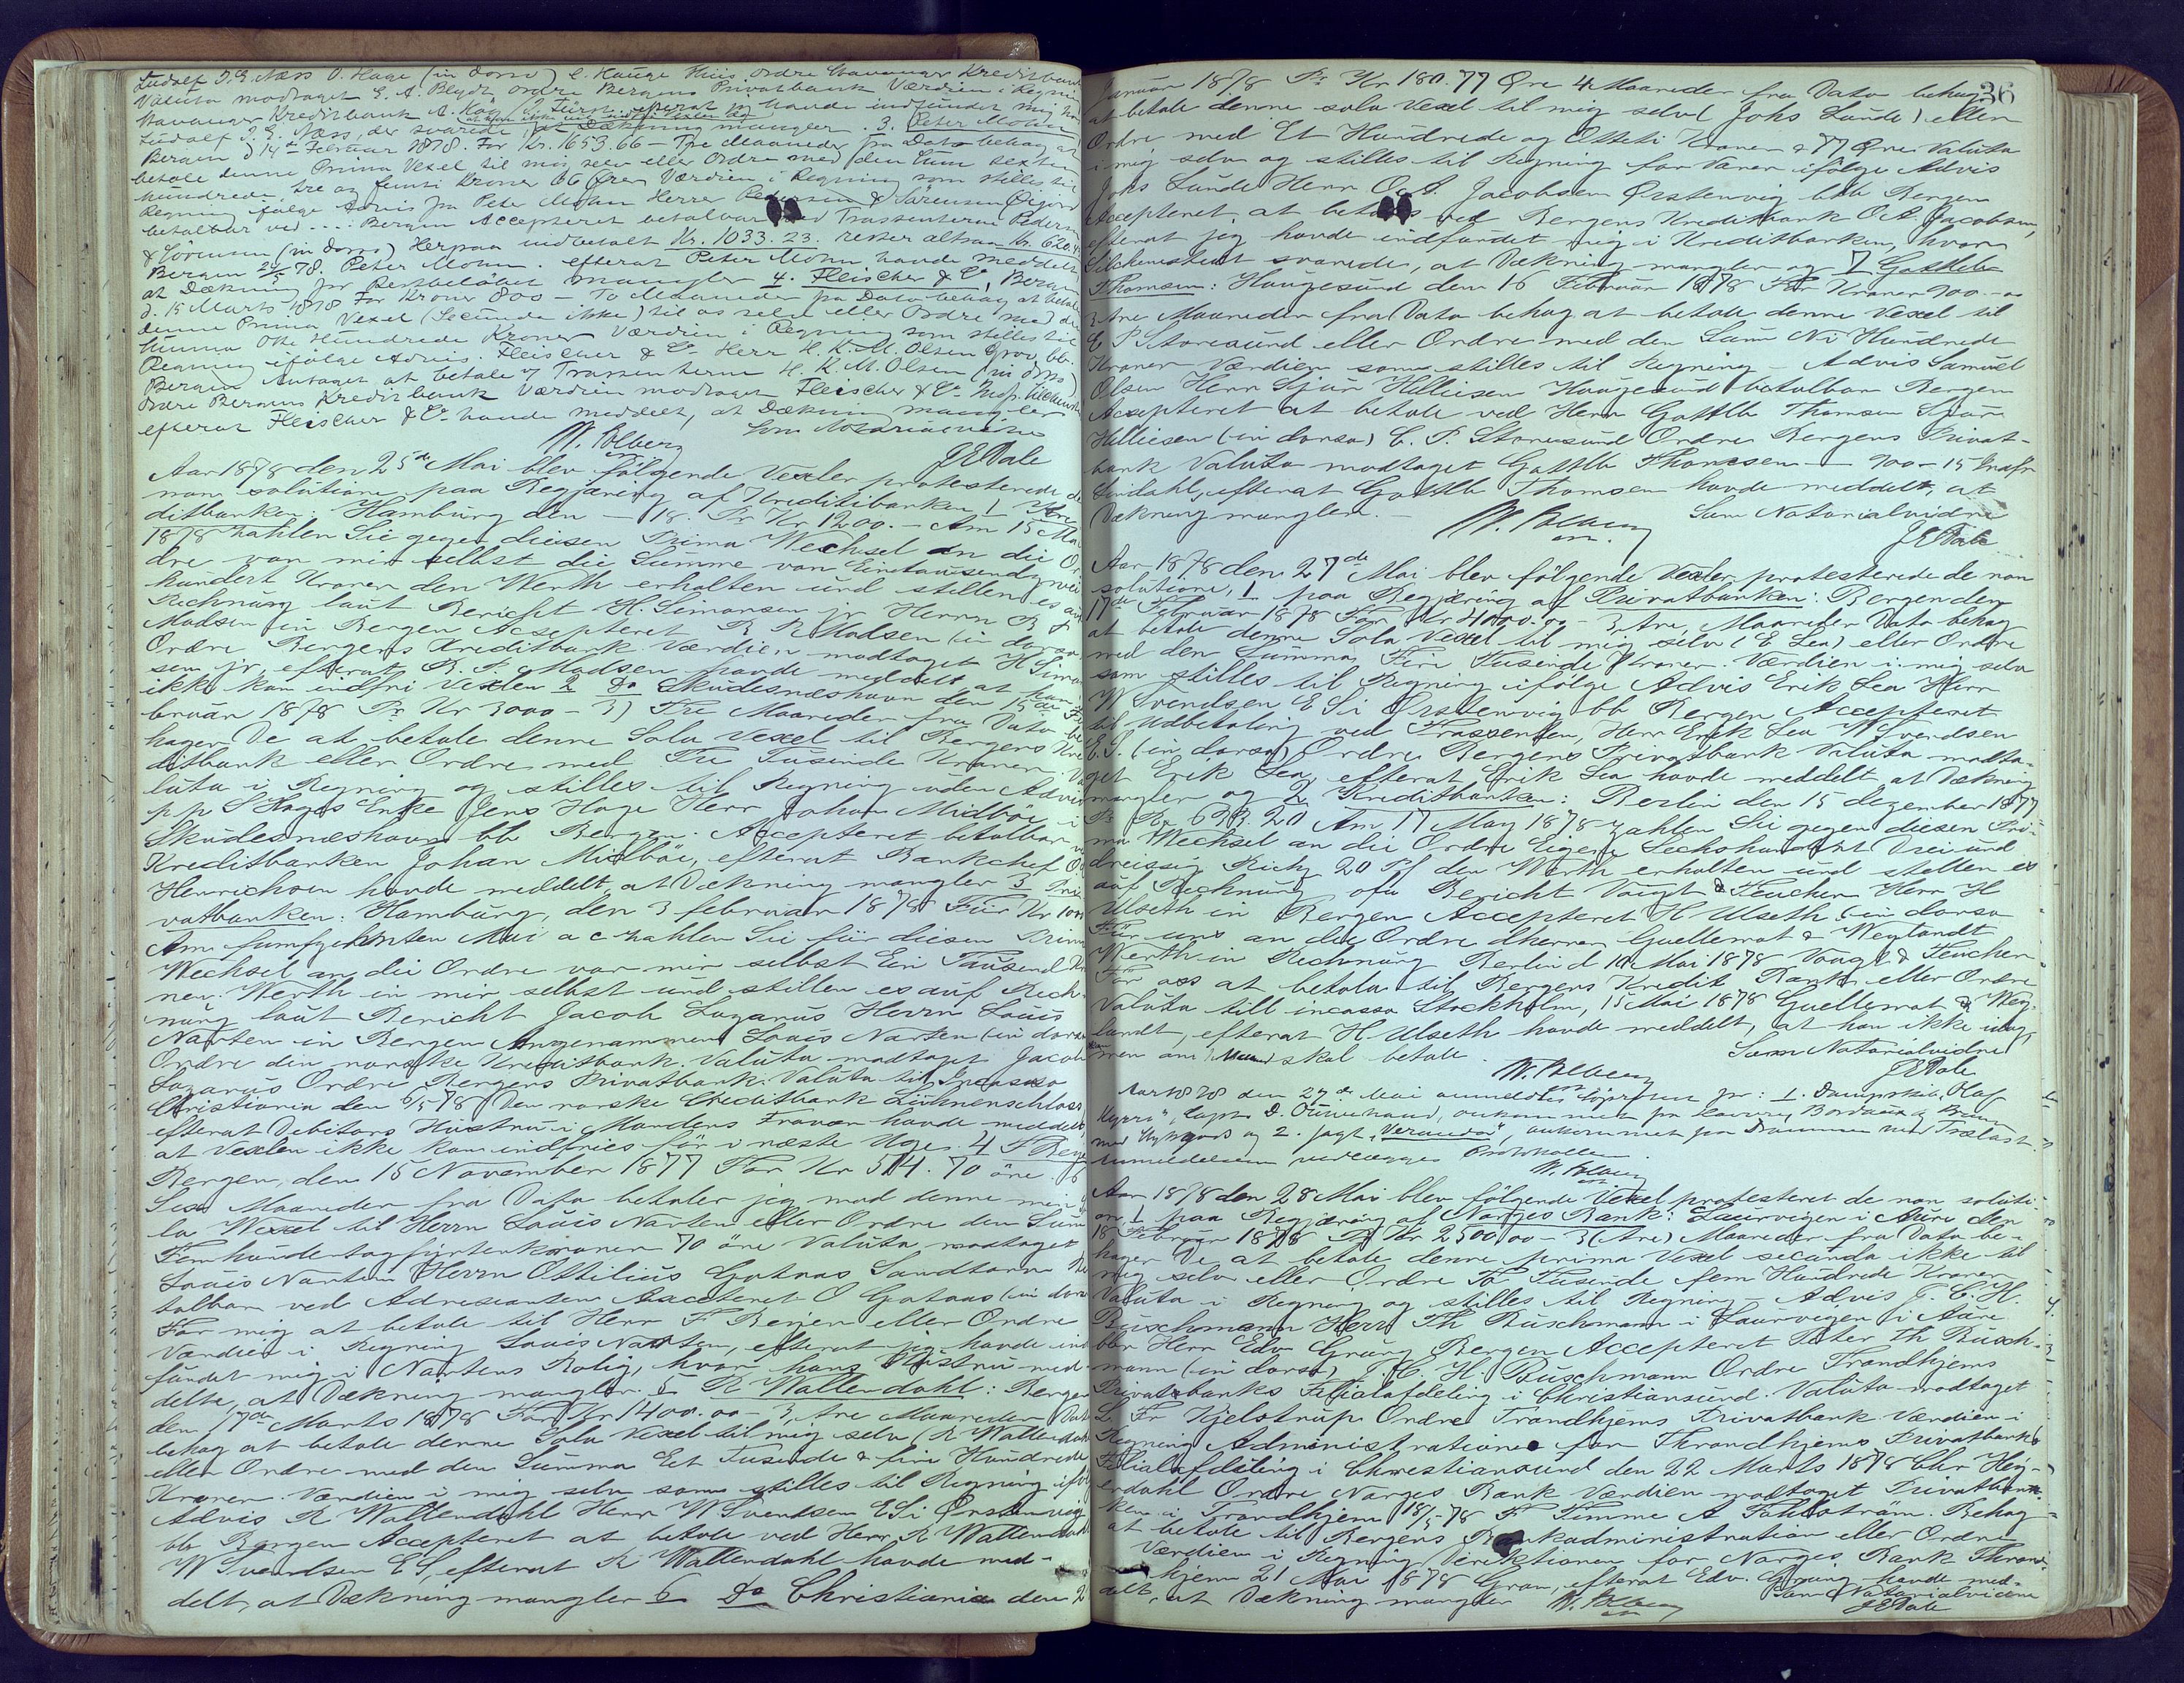 Ludolf J. E. Næss O. Hage (in dorso) C. Hauge Huis ordre Stavanger Kreditbank
Valuta modtaget E. A. Blydt ordre Bergens Privatbank Værdien i Regning
Stavanger Kreditbank A. Køhler J. Fürst, efterat jeg havde indfundet mig hos
Ludolf J. E. Næss, der svarede, at Dækning mangler. 3. Peter Mohn
Bergen d 14de Februar 1878. For Kr. 1653.66 – Tre Maaneder fra Dato behag at
betale denne Prima Vexel til mig selv eller Ordre med den Sum sexten
hundrede tre og femti Kroner 66 Øre Værdien i Regning som stilles til
Regning ifølge Advis fra Peter Mohn Herrer Pedersen & Sørensen
betalbar ved .... Bergen Accepteret betalbar ved Trassenterne Pedersen
& Sørensen (in dorso) Herpaa indbetalt Kr. 1033.23. rester altsaa Kr. 620.43
Bergen 78. Peter Mohn. efterat Peter Mohn havde meddelt
at Dækning for Restbeløbet mangler 4. Fleischer & Co, Bergen
d. 15 Marts 1878 For Kroner 800 – To Maaneder fra Dato behag at betale
denne Prima Vexel (Secunda ikke) til os selv eller Ordre med den
Summa Otte Hundrede Kroner Værdien i Regning som stilles til
Regning ifølge Advis. Fleischer & Co – Herr H. K. M. Olsen bb.
Bergen Antaget at betale af Trassenterne H. K. M. Olsen (in dorso)
Ordre Bergens Kreditbank Værdien modtaget Fleischer & Co
efterat Fleischer & Co havde meddelt, at Dækning mangler
Som Notarialvidne
J E Dale
Aar 1878 den 25de Mai blev følgende Vexler protesterede de
non solutione paa Begjæring af Kreditbanken 1
ditbanken: Hamburg den – 18. Pr Kr 1200. – Am 15 Mai
1878 zahlen Sie gegen diesen Prima Wechsel an die Or
dre von mir selbst die Summe von Eintausendzwei
hundert Kronen den Werth erhalten und stellen es auf
Rechnung laut Bericht H. Simonsen jr Herrn R P
Madsen in Bergen Accepteret R P Madsen (in dorso
Ordre Bergens Kreditbank. Værdien modtaget H Simon
sen jr, efterat R. P. Madsen havde meddelt at han
ikke kan indfri Vexlen 2 Do Skudesnæshavn den 15de Fe
bruar 1878 Pr Kr 3000 – 3) Tre Maaneder fra Dato be
hager De at betale denne Sola Vexel til Bergens Kre
ditbank eller Ordre med Tre Tusinde Kroner Va
luta i Regning og stilles til Regning uden Advis
p p Hages Enke Jens Hage Herr Johan Midbøe i
Skudesnæshavn bb Bergen. Accepteret betalbar ved
Kreditbanken Johan Midbøe, efterat Bankchef
Henrichsen havde meddelt at Dækning mangler 3 Pri
vatbanken: Hamburg, den 3 februar 1878 Für Kr 1000
Am fumfzehnten Mai a c zahlen Sie für diesen Prima
Wechsel an die Ordre von mir selbst Ein Tausend Kro
nen. Werth in mir selbst und stellen es auf Rech-
nung laut Bericht Jacob Lazarus Herrn Louis
Narten in Bergen Angenommen Louis Narten (in dorso
Ordre den norske Kreditbank. Valuta modtaget Jacob
Lazarus Ordre Bergens Privatbank. Valuta til Incasso
Christiania den 6/5 78 Den norske Creditbank
efterat Debitors Hustru i Mandens Fravær havde meddelt,
at Vexlen ikke kan indfries før i næste Uge 4 F Beyer
Bergen, den 15 November 1877 For Kr 514. 70 øre. 6
Sex Maaneder fra Dato betaler jeg mod denne min
la Vexel til Herrn Louis Narten eller Ordre den Sum
Femhundertogfjortenkroner 70 øre Valuta modtaget
Louis Narten Herrn Ottilius Gotaas Sandtorv be
talbar ved Adressanten Accepteret O Gotaas (in dorso
For mig at betale til Herr F Beyer eller Ordre
Værdien i Regning Louis Narten, efterat jeg havde ind
fundet mig i Nartens Bolig, hvor hans Hustru med
delte, at Dækning mangler. 5 R Wallendahl: Bergen
den 17de Marts 1878 For Kr 1400.00 – 3, tre Maaneder Dato
behag at betale denne Sola Vexel til mig selv (R Wallendahl
eller Ordre med den Summa Et Tusinde & fire Hundrede
Kroner. Værdien i mig selv som stilles til Regning ifølge
Advis R Wallendahl Herr W Svendsen E S i Ørstenvig
bb Bergen Accepteret at betale ved Herr R Wallendahl
W Svendsen E S, efterat R Wallendahl havde med-
delt, at Dækning mangler 6 Do Christiania den 2
36
Januar 1878 Pr Kr 180.77 Øre 4 Maaneder fra Dato behag
at betale denne sola Vexel til mig selv (Johs Lunde) eller
Ordre, med Et Hundrede og Otteti Kroner & 77 Øre. Valuta
i mig selv og stilles til Regning for Varer ifølge Advis
Johs Lunde Herr O. A. Jacobsen Ørstenvig bb Bergen
Accepteret, at betales ved Bergens Kreditbank O A Jacobsen,
efterat jeg havde indfundet mig i Kreditbanken, hvor
svarede, at Dækning mangler og 7 Gottleb
Thomsen: Haugesund den 16 Februar 1878 For Kroner 900.–
3 tre Maaneder fra Dato behag at betale denne Vexel til
C P Storesund eller Ordre med den Sum Ni Hundrede
Kroner Værdien som stilles til Regning – Advis Samuel
Olsen Herr Sjur Helliesen Haugesund betalbar Bergen
Accepteret at betale ved Herr Gottlb Thomsen Sjur
Helliesen (in dorso) C. P. Storesund Ordre Bergens Privat-
bank Valuta modtaget Gottlb Thomsen – 900 – 15
Lindahl, efterat Gottlb Thomsen havde meddelt, at
Dækning mangler. –
Som Notarialvidne
J E Dale
Aar 1878 den 27de Mai blev følgende Vexler protesterede de non
solutione, 1 paa Begjæring af Privatbanken: Bergen den
17de Februar 1878 For Kr 4000.00 – 3, tre, Maaneder Dato behag
at betale denne Sola Vexel til mig selv (E Lea) eller Ordre
med den Summa Fire Tusende Kroner. Værdien i mig selv
som stilles til Regning ifølge Advis Erik Lea Herr
W Svendsen E S i Ørstenvig bb Bergen Accepteret
til Udbetaling ved Trassenten, Herr Erik Lea W Svendsen
E. S. (in dorso) Ordre Bergens Privatbank Valuta modta-
get Erik Lea, efterat Erik Lea havde meddelt, at Dækning
mangler og 2 Kreditbanken: Berlin den 15 dezember 1877
Pr 633. 20 Am 17 May 1878 zahlen Sie gegen diesen Pri-
ma Wechsel an die Ordre eigene Sechshundert Drei und
dreissig 20 Pf den Werth erhalten und stellen es
auf Rechnung ohne Bericht Vaugt & Teucher Herr H
Ulseth in Bergen Accepteret H Ulseth (in dorso
Für uns an die Ordre dherren Guellemot & Weylandt
Werth in Rechnung Berlin d 10 Mai 1878 Vaugt & Teucher
For oss at betala til Bergens Kredit Bank eller Ordre
Valuta till incasso Stockholm, 15 Mai 1878 Guellemot & Wey-
landt, efterat H Ulseth havde meddelt, at han ikke idag,
men om skal betale.
Som Notarialvidne
J E Dale
Aar 1878 den 27de Mai anmeldtes Søprotest for: 1. Dampskib „Olaf
Kyrre", Capt. D. Ouwehand, ankommet fra Havre, Bordeaux &
med Stykgods og 2. Jagt „Veranda", ankommet fra Drammen med Trælast.
Anmeldelserne vedlægges Protokollen.
Aar 1878 den 28 Mai blev følgende Vexel protesteret de non soluti-
one 1 paa Begjæring af Norges Bank: Laurvigen i Aure den
18 Februar 1878 Pr Kr 2500.00 – 3 (tre) Maaneder fra Dato be-
hager De at betale denne prima Vexel secunda ikke til
mig selv eller Ordre To Tusinde fem Hundrede Kroner
Valuta i Regning og stilles til Regning – Advis J. C. H.
Buschmann Herr Th Buschmann i Laurvigen i Aure
bbr Herr Edv Grung Bergen Accepteret Peter Th Busch-
mann (in dorso) J. C. H. Buschmann Ordre Trondhjems
Privatbanks Filialafdeling i Christiansund. Valuta modtaget
L. Fr Kjelstrup Ordre Trondhjems Privatbank Værdien i
Regning Administrationen for Throndhjems Privatbanks
Filialafdeling i Christiansund den 22 Marts 1878 Chr Hey-
erdahl Ordre Norges Bank Værdien modtaget Privatban-
ken i Trondhjem 18/5 78 F Finne A Fahlstrøm. Behag
at betale til Bergens Bankadministration eller Ordre
Værdien i Regning Direktionen for Norges Bank Thrond-
hjem 21 Mai 1878 Gran, efterat Edv. Grung havde med-
delt, at Dækning mangler
Som Notarialvidne
J E Dale